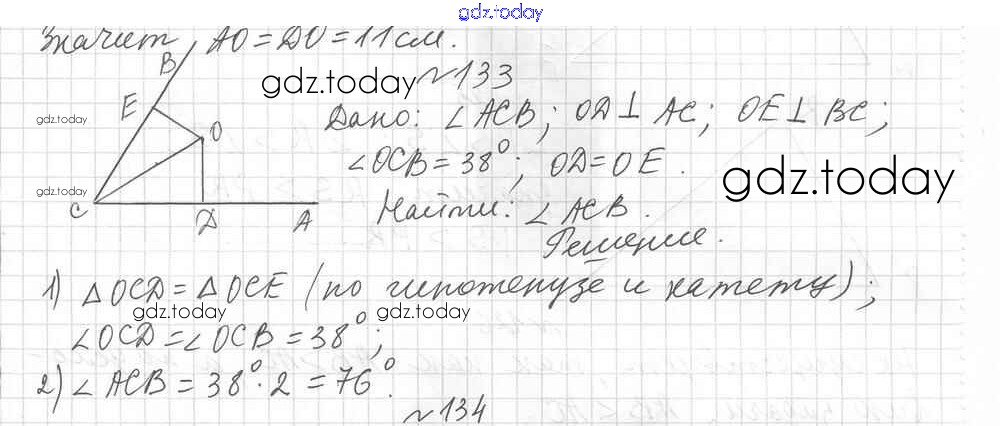 gdz.today
Значит, AO = DO = 11 см.
№133
gdz.today
Дано: ∠ACB; OD⊥AC; OE⊥BC;
∠OCB = 38°; OD = OE.
gdz.today
Найти: ∠ACB.
Решение.
B
E
O
C
D
A
gdz.today
gdz.today
1) △OCD = △OCE (по гипотенузе и катету);
gdz.today
gdz.today
∠OCD = ∠OCB = 38°;
2) ∠ACB = 38° · 2 = 76°.
№134